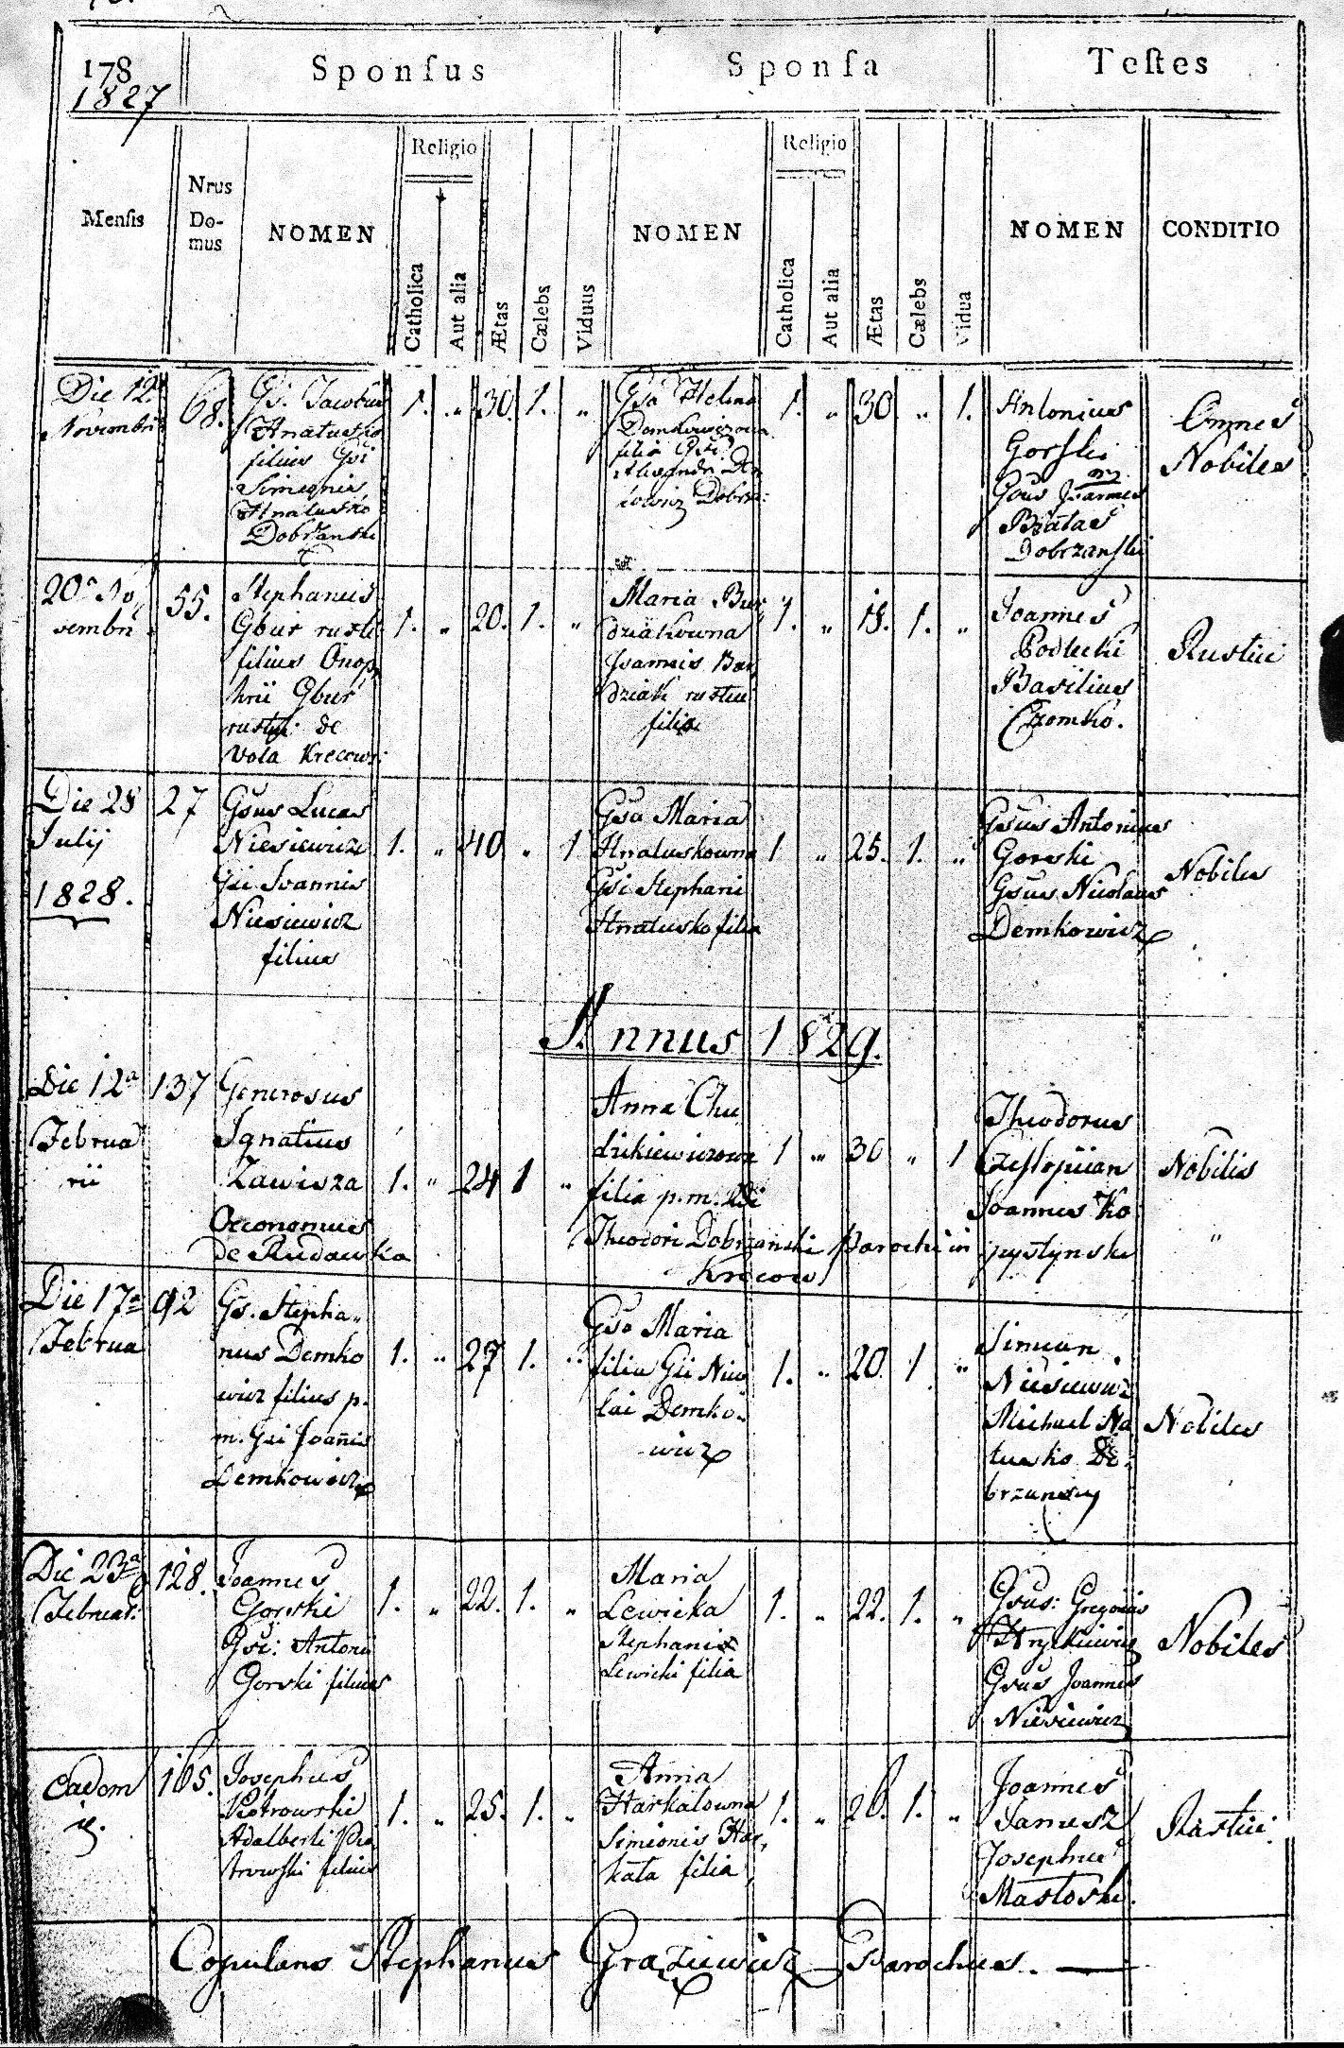 178
1827
Sponsus
Sponsa
Testes
Mensis
Nrus Domus
NOMEN
Religio
Catholica
Aut alia
Ætas
Cælebs
Viduus
NOMEN
Religio
Catholica
Aut alia
Ætas
Cælebs
Vidua
NOMEN
CONDITIO
Die 12a
Novembris
68.
Gs. Jacobus
Hnatusko
filius Gsi
Simeonis
Hnatusko
Dobrzanski
1. „ 30. 1. „
Gsa Helena
Demkowiczowa
filia Gsi
Alexandri
Dobrza:
1. „ 30 „ 1.
Antonius
Gorski
Gsus Joannes
Bratas
Dobrzanski
Omnes
Nobiles
20a No
vembris
55.
Stephanus
Gbur rusti
filius Onop
hrii Gbur
de
Vola Krecow:
1. „ 20. 1. „
Maria Bur
dziakowna
Joannis Bur
dziak rustici
filia
1. „ 18. 1. „
Joannes
Podlecki
Basilius
Czomko.
Rustici
Die 28
Julij
1828.
27
Gsus Lucas
Niesiewicz
Gsi Joannis
Niesiewicz
filius
1. „ 40 „ 1
Gsa Maria
Hnatuskowna
Gsi Stephani
Hnatusko filia
1 „ 25. 1. „
Gsus Antonius
Gorski
Gsus Nicolaus
Demkowicz
Nobiles
Annus 1829.
Die 12a
Februa
rii
137
Generosus
Ignatius
Zawisza
Oeconomus
de Rudawka
1. „ 24 1 „
Anna Chu
dzikiewiczowa
filia p. m.
Theodori Dobrzanski Parochi in
Krecow
1 „ 30 „ 1
Theodorus
Joannes Ko
pystynski
Nobilis
„
Die 17a
Februa
92
Gs. Stepha„
nus Demko
wicz filius p.
m. Gsi Joannis
Demkowicz
1. „ 27 1. „
Gsa Maria
filia Gsi Nico
lai Demko„
wicz
1. „ 20. 1 „
Simeon
Niesiewicz
Michael Na
tusko Do
brzansky
Nobiles
Die 23a
Februar:
128.
Joannes
Gorski
Gsi: Antonii
Gorski filius
1. „ 22. 1. „
Maria
Lewicka
Stephani
Lewicki filia
1. „ 22. 1. „
Gsus: Gregorius
Hrynkiewicz
Gsus Joannes
Niesiewicz
Nobiles
Eadem
165.
Josephus
Piotrowski
Adalberti Pio
trowski filius
1. „ 25. 1. „
Anna
Harkalowna
Simionis Har„
kala filia
1. „ 26. 1. „
Joannes
Janusz
Josephus
Mastoski.
Rustici
Copulans Stephanus Graziewicz Parochus.